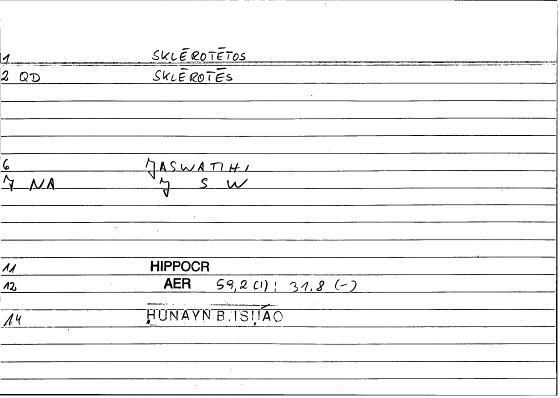 1 SKLĒROTĒTOS
2 QD SKLĒROTĒS
6 JASWATIHI
7 NA J S W
11 HIPPOCR
12 AER 59,2 (1) ; 31,8 (-)
14 ḤUNAYN B. ISḤĀQ